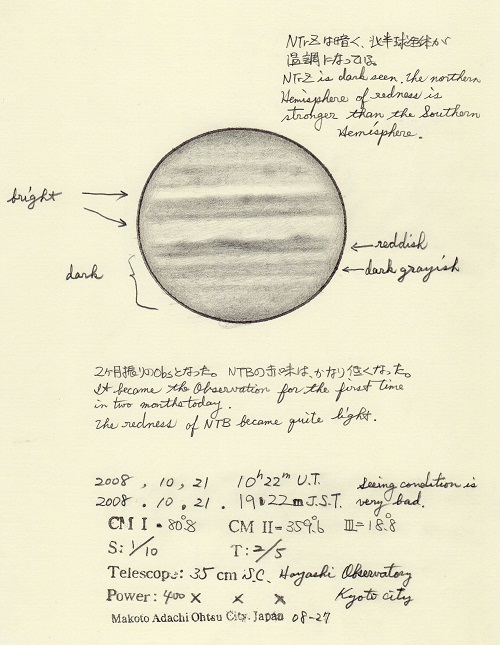 NTrZは暗く、北半球全体が
温調になっている。
NTrZ is dark seen. The northern
Hemisphere of redness is
stronger than the Southern
Hemisphere.
bright
reddish
dark grayish
dark
2ヶ月振りのObsとなった。NTBの赤味は、かなり低くなった。
It became the Observation for the first time
in two months today.
The redness of NTB became quite light.
2008 , 10 , 21 10h22m U.T. Seeing condition is
2008 . 10 . 21 . 19h22m J.S.T. very bad.
CM I = 80°.8 CM II = 359°.6 III = 18°.8
S: 1/10 T: 2/5
Telescope: 35 cm S.C. Hayashi Observatory
Power: 400 x x x Kyoto city
Makoto Adachi Ohtsu City. Japan 08-27